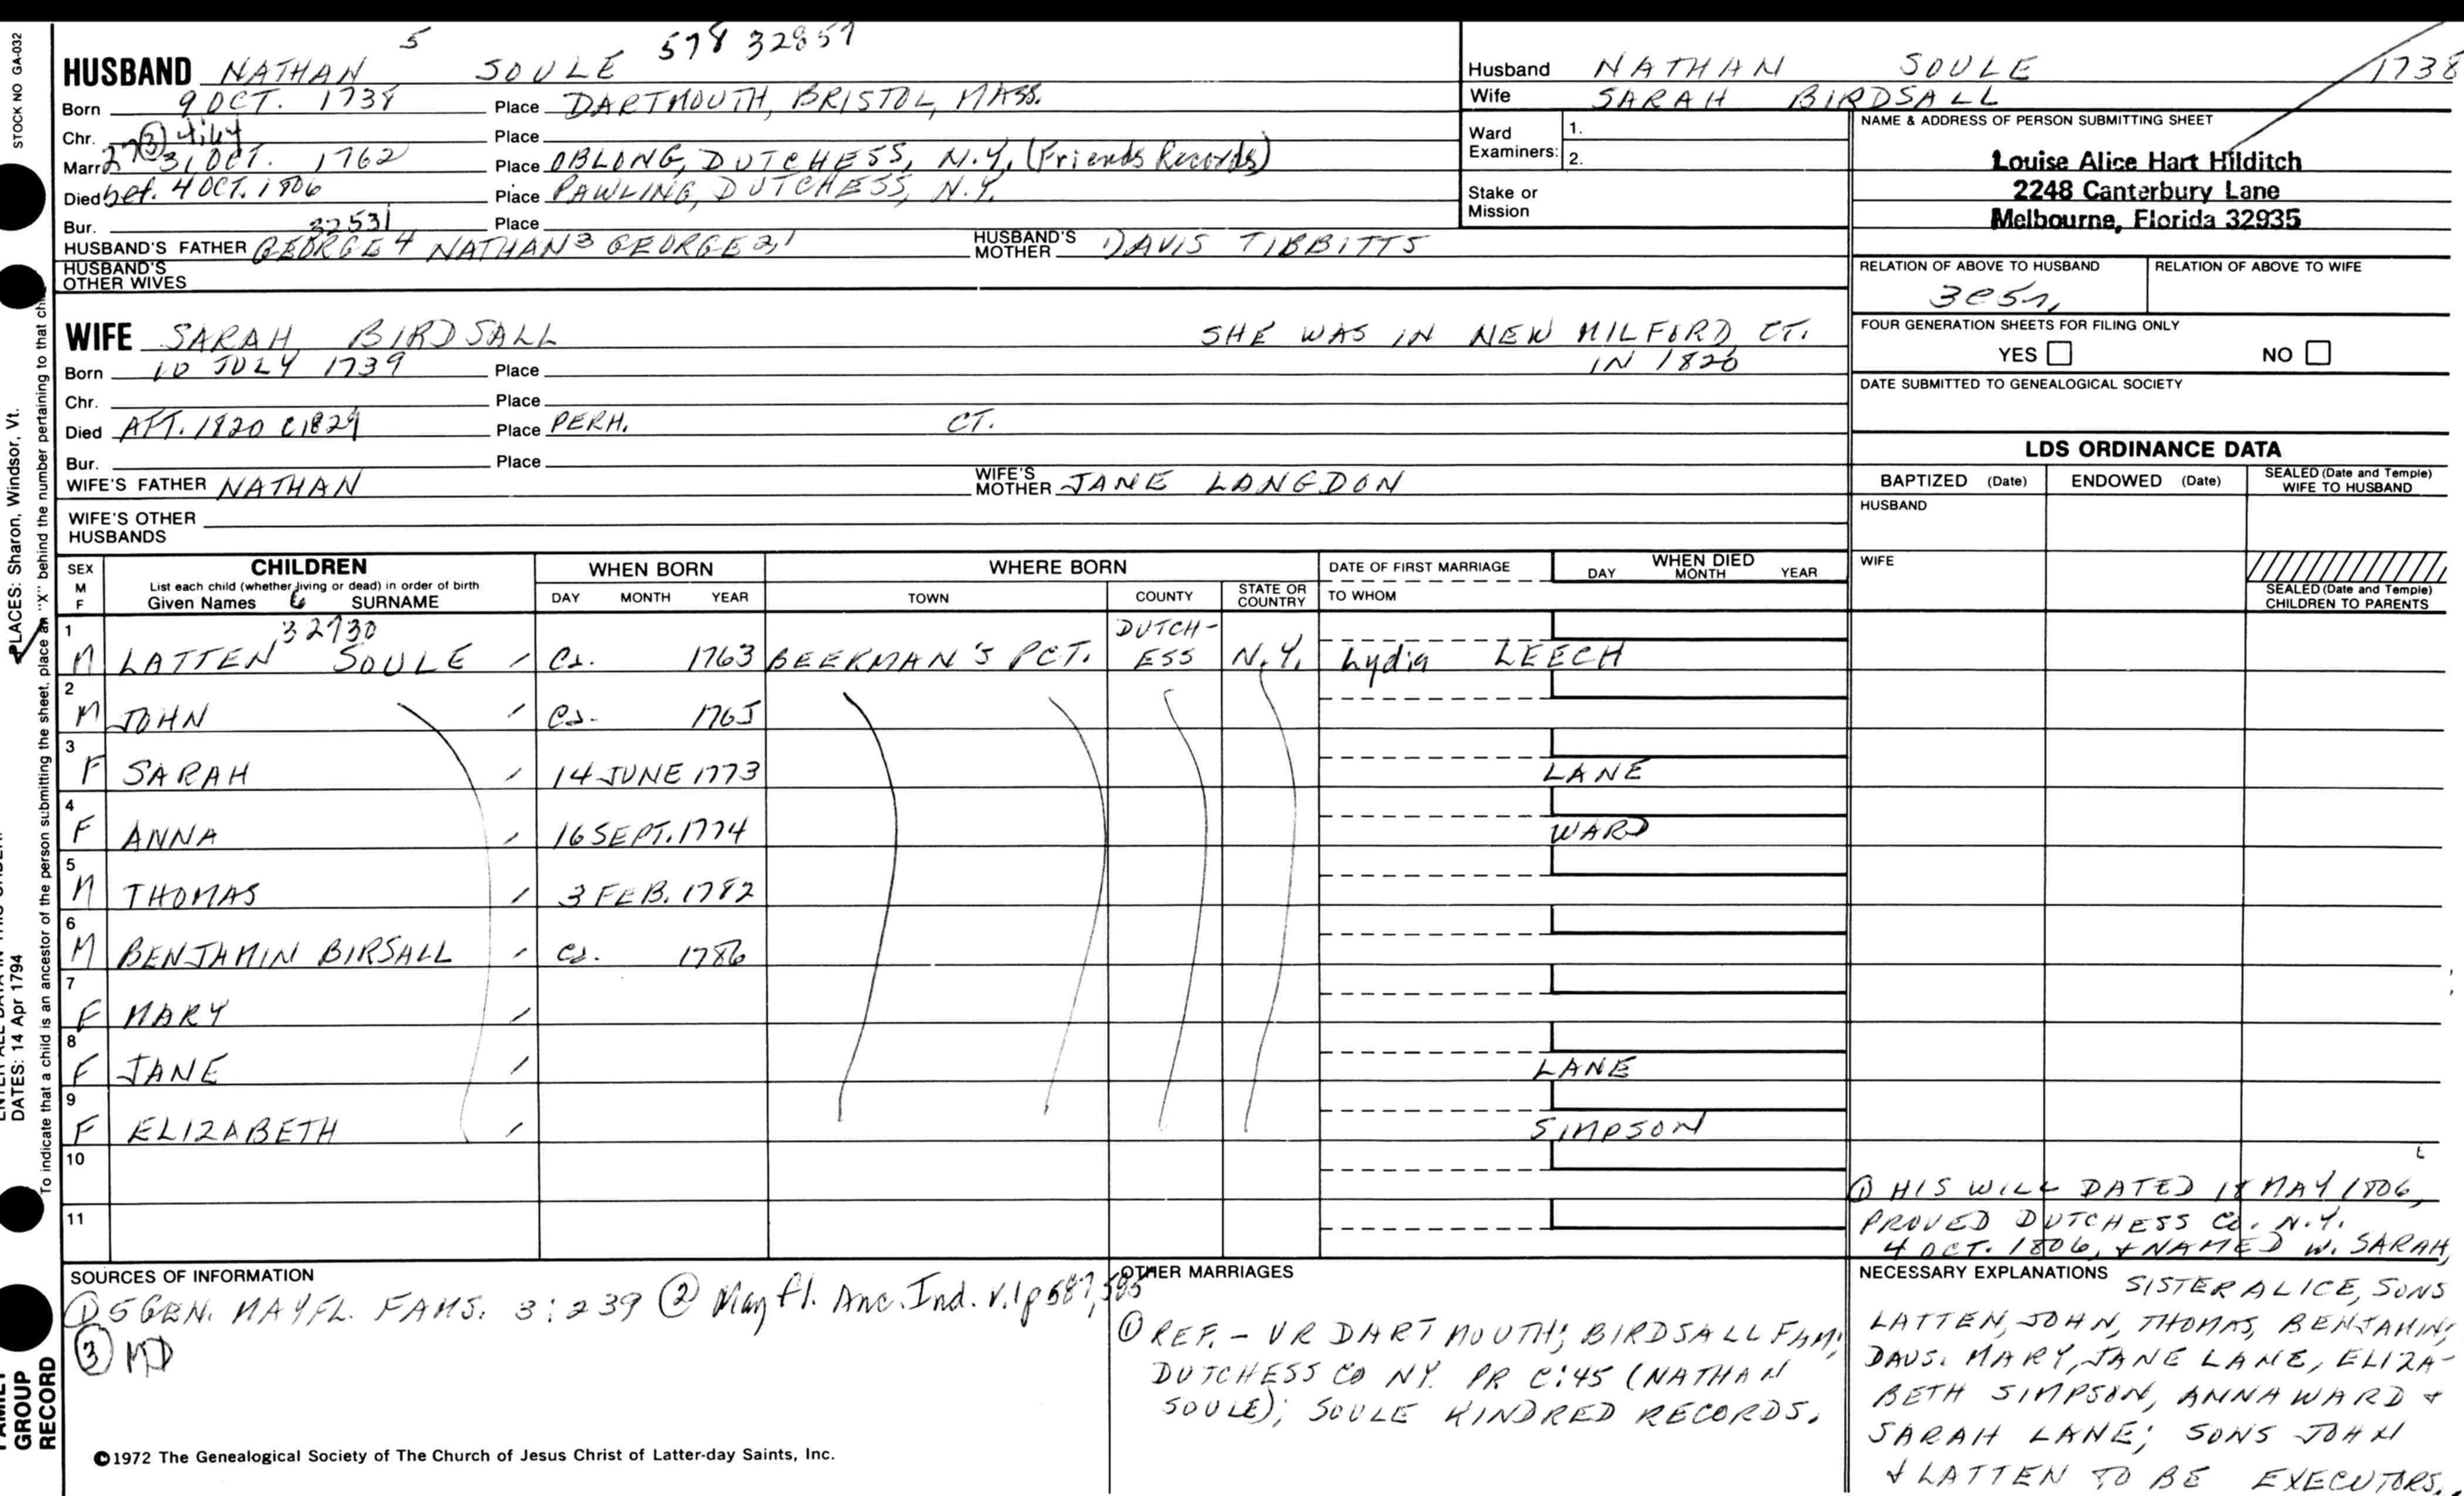 STOCK NO GA-032
5 578 32857
HUSBAND NATHAN SOULE
Born 9 OCT. 1738 Place DARTMOUTH, BRISTOL, MASS.
Chr. Place
Marr. 31 OCT. 1762 Place OBLONG, DUTCHESS, N.Y. (Friends Records)
Died bef. 4 OCT. 1806 Place PAWLING, DUTCHESS, N.Y.
Bur. Place
32531
HUSBAND'S FATHER GEORGE 4 NATHAN 3 GEORGE 2,1 HUSBAND'S MOTHER DAVIS TIBBITTS
HUSBAND'S OTHER WIVES
WIFE SARAH BIRDSALL SHE WAS IN NEW MILFORD, CT.
IN 1820
Born 10 JULY 1739 Place
Chr. Place
Died AFT. 1820 C1829 Place PERH. CT.
Bur. Place
WIFE'S FATHER NATHAN WIFE'S MOTHER JANE LANGDON
WIFE'S OTHER HUSBANDS
Husband NATHAN SOULE 1738
Wife SARAH BIRDSALL
Ward Examiners: 1.
2.
Stake or Mission
NAME & ADDRESS OF PERSON SUBMITTING SHEET
Louise Alice Hart Hilditch
2248 Canterbury Lane
Melbourne, Florida 32935
RELATION OF ABOVE TO HUSBAND RELATION OF ABOVE TO WIFE
FOUR GENERATION SHEETS FOR FILING ONLY
YES NO
DATE SUBMITTED TO GENEALOGICAL SOCIETY
LDS ORDINANCE DATA
BAPTIZED (Date) ENDOWED (Date) SEALED (Date and Temple) WIFE TO HUSBAND
HUSBAND
WIFE
SEALED (Date and Temple) CHILDREN TO PARENTS
SEX M F
CHILDREN
List each child (whether living or dead) in order of birth
Given Names 6 SURNAME
WHEN BORN
DAY MONTH YEAR
WHERE BORN
TOWN COUNTY STATE OR COUNTRY
DATE OF FIRST MARRIAGE
TO WHOM
WHEN DIED
DAY MONTH YEAR
32730
1 M LATTEN SOULE Ca. 1763 BEEKMAN'S PCT. DUTCH-ESS N.Y. Lydia LEECH
2 M JOHN Ca. 1765
3 F SARAH 14 JUNE 1773 LANE
4 F ANNA 16 SEPT. 1774 WARD
5 M THOMAS 3 FEB. 1782
6 M BENJAMIN BIRSALL Ca. 1786
7 F MARY
8 F JANE LANE
9 F ELIZABETH SIMPSON
10
11
SOURCES OF INFORMATION
① 5 GEN. MAYFL. FAMS. 3:239 ② Mayfl. Anc. Ind. V.1 p 587, 585
③ MD
©1972 The Genealogical Society of The Church of Jesus Christ of Latter-day Saints, Inc.
OTHER MARRIAGES
① REF. - VR DARTMOUTH; BIRDSALL FAM;
DUTCHESS CO NY. PR C:45 (NATHAN
SOULE); SOULE KINDRED RECORDS.
① HIS WILL DATED 18 MAY 1806,
PROVED DUTCHESS Co. N.Y.
4 OCT. 1806, + NAMED W. SARAH,
NECESSARY EXPLANATIONS SISTER ALICE, SONS
LATTEN, JOHN, THOMAS, BENJAMIN;
DAUS. MARY, JANE LANE, ELIZA-
BETH SIMPSON, ANNA WARD +
SARAH LANE; SONS JOHN
+ LATTEN TO BE EXECUTORS.
PLACES: Sharon, Windsor, Vt.
DATES: 14 Apr 1794
To indicate that a child is an ancestor of the person submitting the sheet, place an "X" behind the number pertaining to that
GROUP
RECORD